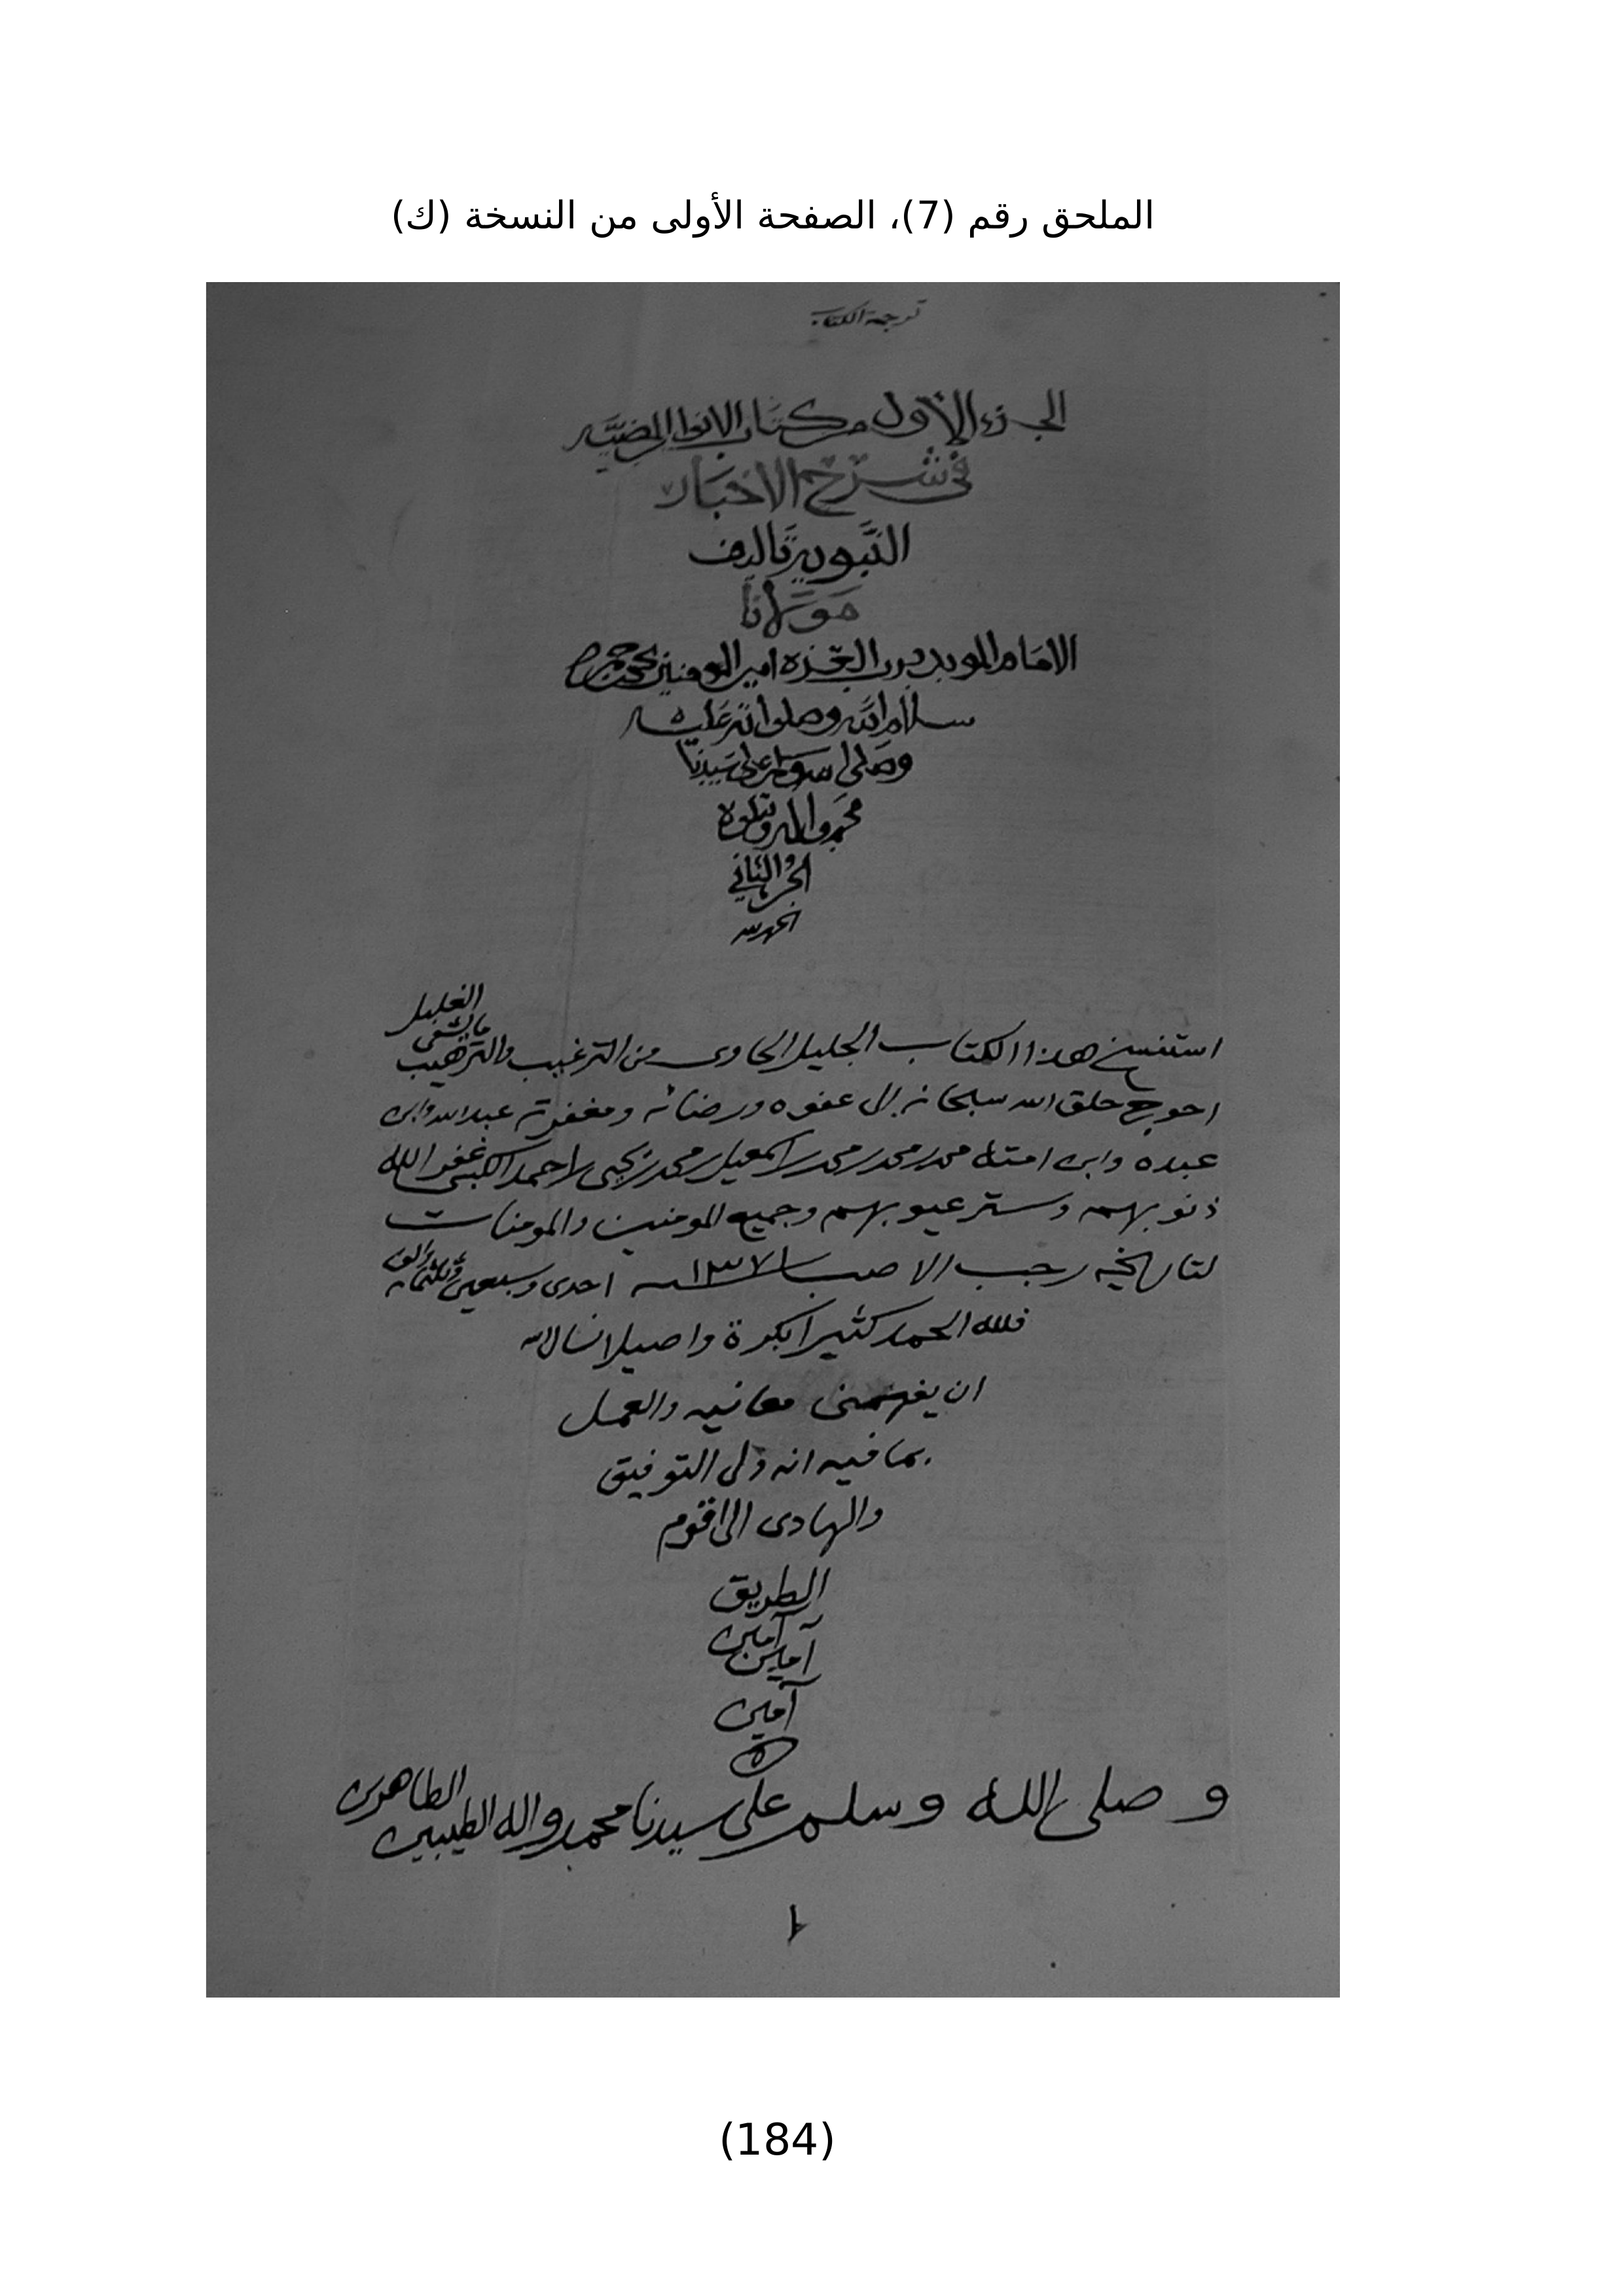 الملحق رقم (7)، الصفحة الأولى من النسخة (ك)
ترجمة الكتاب
الجزء الأول من كتاب الانوار المضيَّه
في شرح الاخبار
النَّبويه تاليف
مَولانا
الامام المويد برب العزه امير المومنين يحيى بن حمزه
سلام الله وصلواته عليه
وصلى الله وسلم على سيدنا
محمد واله ويتلوه
الجزء الثاني
الحمد لله
استنسخ هذا الكتاب الجليل الحاوى من الترغيب والترهيب
ما يشفى
الغليل
احوج خلق الله سبحانه الى عفوه ورضائه ومغفرته عبد الله وابن
عبده وابن امته محمد بن محمد بن محمد بن اسمعيل بن محمد بن يحيى بن احمد الكبسى غفر الله
ذنوبهم وستر عيوبهم وجميع المومنين والمومنات
لتاريخه رجب الاصب ١٣٧١ احدى وسبعين وثلثمائه والف
فلله الحمد كثيرا بكرة واصيلا نسال الله
ان يفهمنى معانيه والعمل
بما فيه انه ولى التوفيق
والهادى الى اقوم
الطريق
آمين
آمين
آمين
ه
و صلى الله وسلم على سيدنا محمد واله الطيبين
الطاهرين
١
(184)